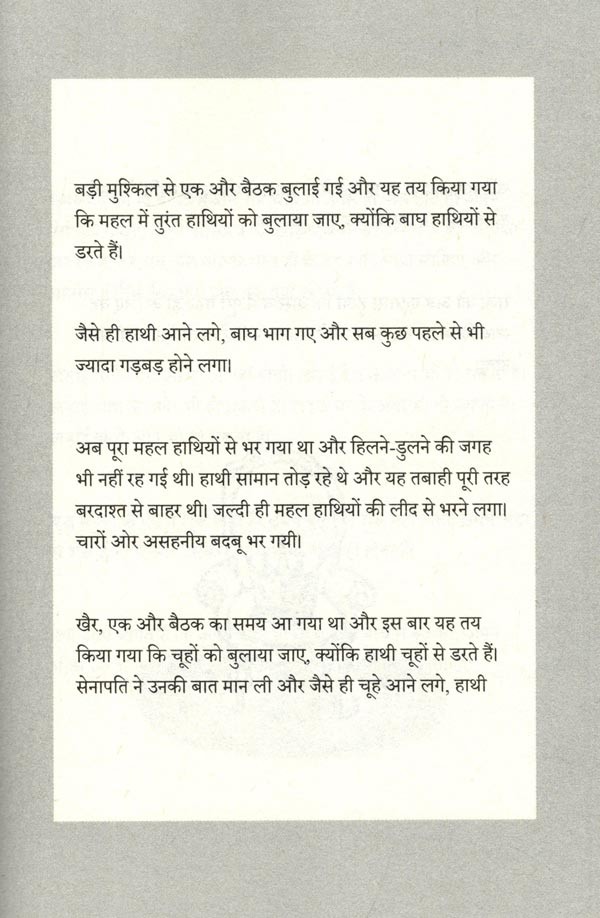 बड़ी मुश्किल से एक और बैठक बुलाई गई और यह तय किया गया
कि महल में तुरंत हाथियों को बुलाया जाए, क्योंकि बाघ हाथियों से
डरते हैं।
जैसे ही हाथी आने लगे, बाघ भाग गए और सब कुछ पहले से भी
ज्यादा गड़बड़ होने लगा।
अब पूरा महल हाथियों से भर गया था और हिलने-डुलने की जगह
भी नहीं रह गई थी। हाथी सामान तोड़ रहे थे और यह तबाही पूरी तरह
बरदाश्त से बाहर थी। जल्दी ही महल हाथियों की लीद से भरने लगा।
चारों ओर असहनीय बदबू भर गयी।
खैर, एक और बैठक का समय आ गया था और इस बार यह तय
किया गया कि चूहों को बुलाया जाए, क्योंकि हाथी चूहों से डरते हैं।
सेनापति ने उनकी बात मान ली और जैसे ही चूहे आने लगे, हाथी